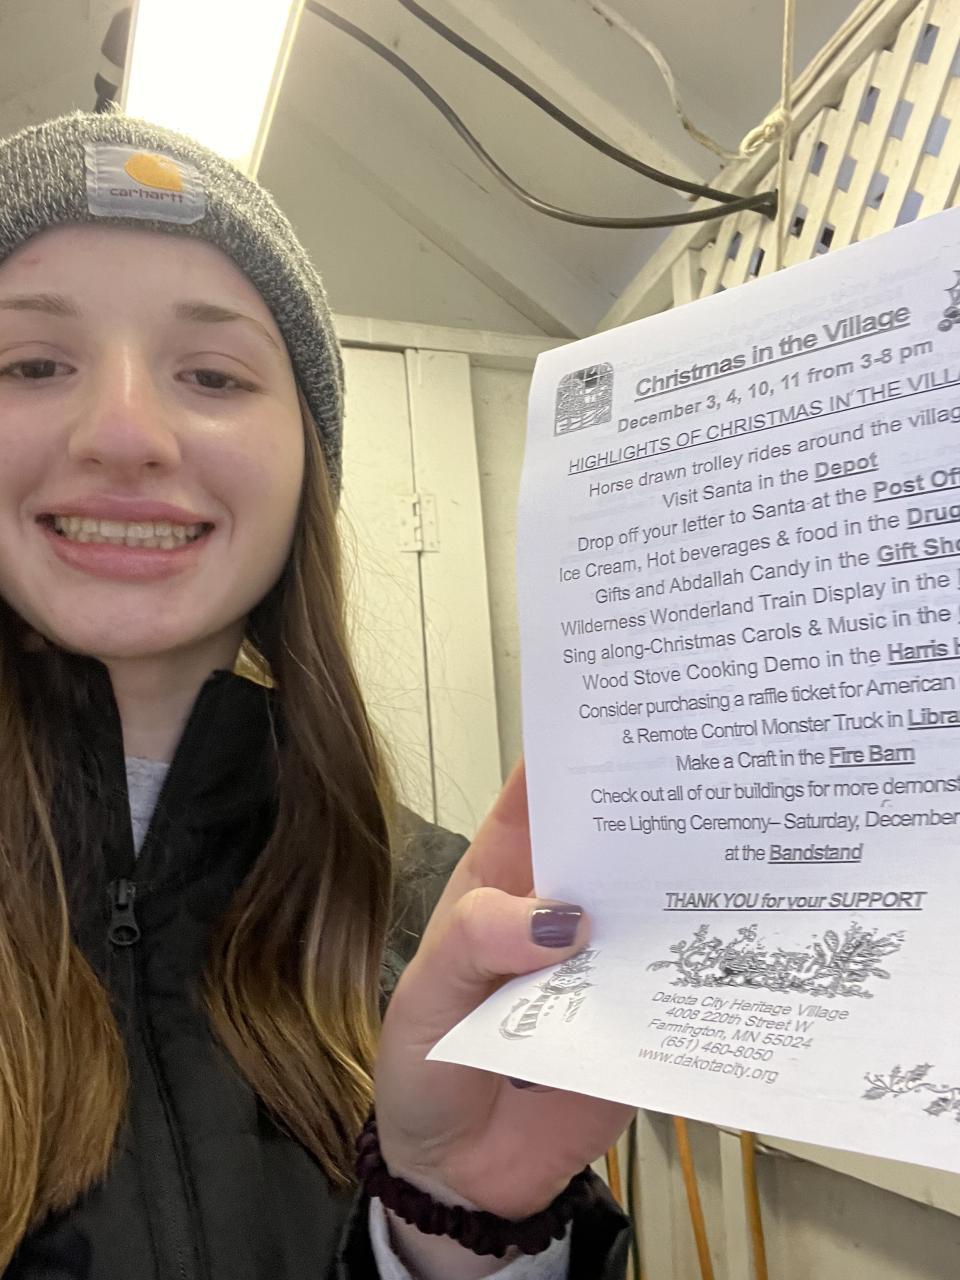 carhartt
Christmas in the Village
December 3, 4, 10, 11 from 3-8 pm
HIGHLIGHTS OF CHRISTMAS IN THE VILLA
Horse drawn trolley rides around the villag
Visit Santa in the Depot
Drop off your letter to Santa at the Post Off
Ice Cream, Hot beverages & food in the Drug
Gifts and Abdallah Candy in the Gift Sho
Wilderness Wonderland Train Display in the
Sing along-Christmas Carols & Music in the
Wood Stove Cooking Demo in the Harris H
Consider purchasing a raffle ticket for American
& Remote Control Monster Truck in Libra
Make a Craft in the Fire Barn
Check out all of our buildings for more demonst
Tree Lighting Ceremony– Saturday, December
at the Bandstand
THANK YOU for your SUPPORT
Dakota City Heritage Village
4008 220th Street W
Farmington, MN 55024
(651) 460-8050
www.dakotacity.org